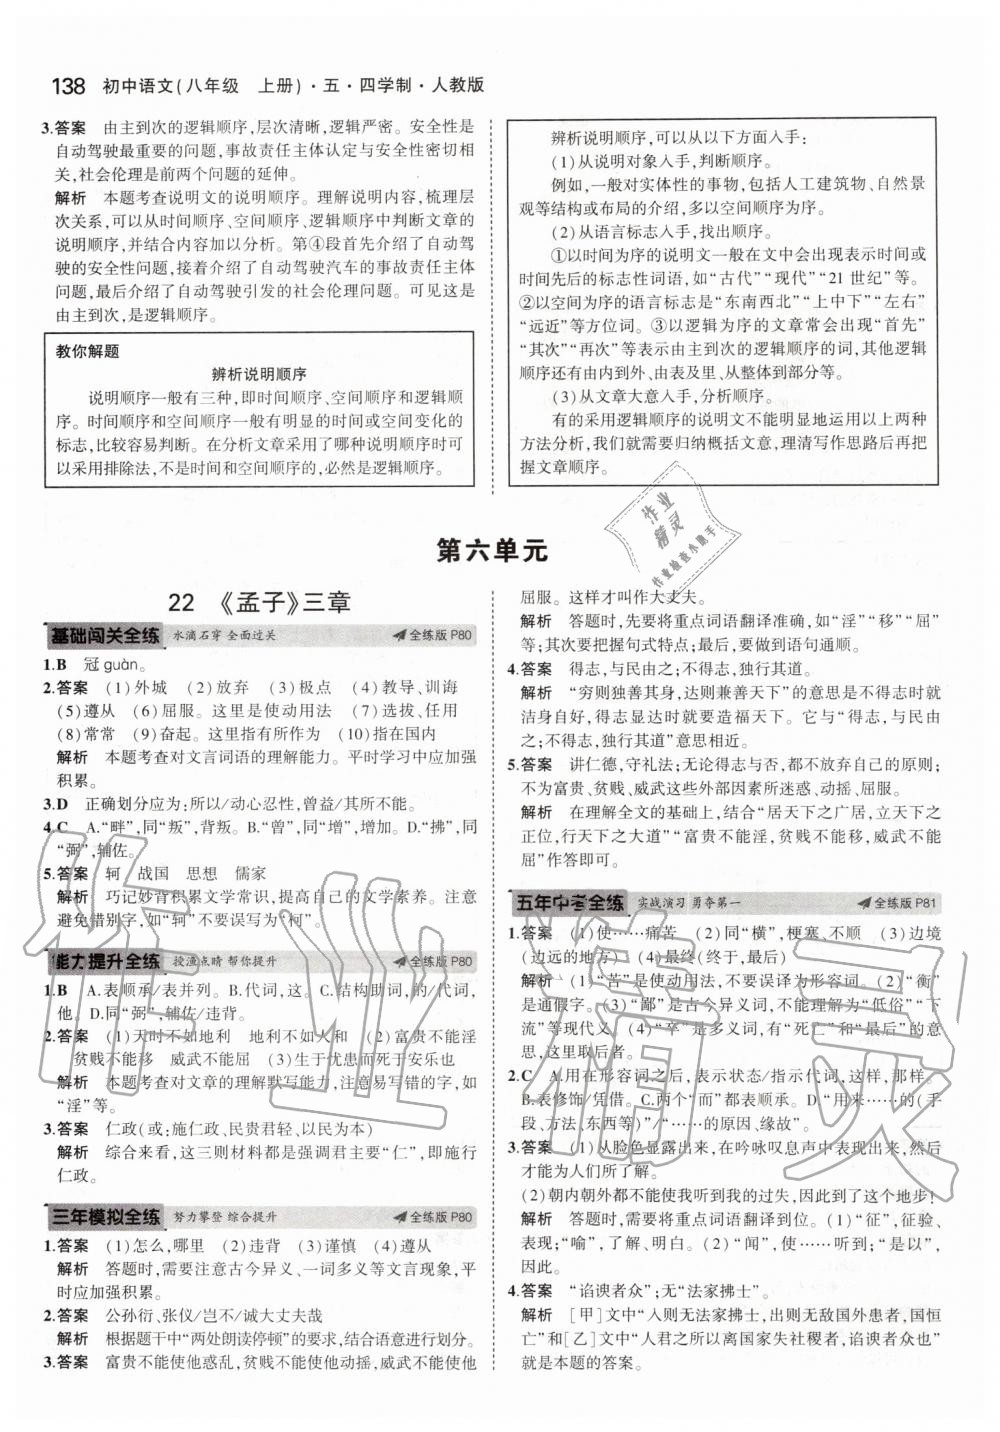 138 初中语文(八年级　上册)·五·四学制·人教版
3.答案　由主到次的逻辑顺序,层次清晰,逻辑严密。安全性是
自动驾驶最重要的问题,事故责任主体认定与安全性密切相
关,社会伦理是前两个问题的延伸。
解析　本题考查说明文的说明顺序。理解说明内容,梳理层
次关系,可以从时间顺序、空间顺序、逻辑顺序中判断文章的
说明顺序,并结合内容加以分析。第④段首先介绍了自动驾
驶的安全性问题,接着介绍了自动驾驶汽车的事故责任主体
问题,最后介绍了自动驾驶引发的社会伦理问题。可见这是
由主到次,是逻辑顺序。
教你解题
辨析说明顺序
说明顺序一般有三种,即时间顺序、空间顺序和逻辑顺
序。时间顺序和空间顺序一般有明显的时间或空间变化的
标志,比较容易判断。在分析文章采用了哪种说明顺序时可
以采用排除法,不是时间和空间顺序的,必然是逻辑顺序。
辨析说明顺序,可以从以下方面入手:
(1)从说明对象入手,判断顺序。
例如,一般对实体性的事物,包括人工建筑物、自然景
观等结构或布局的介绍,多以空间顺序为序。
(2)从语言标志入手,找出顺序。
①以时间为序的说明文一般在文中会出现表示时间或
时间先后的标志性词语,如“古代”“现代”“21 世纪”等。
②以空间为序的语言标志是“东南西北”“上中下”“左右”
“远近”等方位词。③以逻辑为序的文章常会出现“首先”
“其次”“再次”等表示由主到次的逻辑顺序的词,其他逻辑
顺序还有由内到外、由表及里、从整体到部分等。
(3)从文章大意入手,分析顺序。
有的采用逻辑顺序的说明文不能明显地运用以上两种
方法分析,我们就需要归纳概括文意,理清写作思路后再把
握文章顺序。
第六单元
22　《孟子》三章
基础闯关全练　水滴石穿 全面过关　全练版 P80
1.B　冠 guàn。
2.答案　(1)外城　(2)放弃　(3)极点　(4)教导、训诲
(5)遵从　(6)屈服。这里是使动用法　(7)选拔、任用
(8)常常　(9)奋起。这里指有所作为　(10)指在国内
解析　本题考查对文言词语的理解能力。平时学习中应加强
积累。
3.D　正确划分应为:所以/动心忍性,曾益/其所不能。
4.C　A.“畔”,同“叛”,背叛。B.“曾”,同“增”,增加。D.“拂”,同
“弼”,辅佐。
5.答案　轲　战国　思想　儒家
解析　巧记妙背积累文学常识,提高自己的文学素养。注意
避免错别字,如“轲”不要误写为“柯”。
能力提升全练　授渔点睛 帮你提升　全练版 P80
1.B　A.表顺承/表并列。B.代词,这。C.结构助词,的/代词,
他。D.同“弼”,辅佐/违背。
2.答案　(1)天时不如地利　地利不如人和　(2)富贵不能淫
贫贱不能移　威武不能屈　(3)生于忧患而死于安乐也
解析　本题考查对文章的理解默写能力,注意易写错的字,如
“淫”等。
3.答案　仁政(或:施仁政、民贵君轻、以民为本)
解析　综合来看,这三则材料都是强调君主要“仁”,即施行
仁政。
三年模拟全练　努力攀登 综合提升　全练版 P80
1.答案　(1)怎么,哪里　(2)违背　(3)谨慎　(4)遵从
解析　答题时,需要注意古今异义、一词多义等文言现象,平
时应加强积累。
2.答案　公孙衍、张仪/岂不/诚大丈夫哉
解析　根据题干中“两处朗读停顿”的要求,结合语意进行划分。
3.答案　富贵不能使他惑乱,贫贱不能使他动摇,威武不能使他
屈服。这样才叫作大丈夫。
解析　答题时,先要将重点词语翻译准确,如“淫”“移”“屈”
等;其次要把握句式特点;最后,要做到语句通顺。
4.答案　得志,与民由之;不得志,独行其道。
解析　“穷则独善其身,达则兼善天下”的意思是不得志时就
洁身自好,得志显达时就要造福天下。它与“得志,与民由
之;不得志,独行其道”意思相近。
5.答案　讲仁德,守礼法;无论得志与否,都不放弃自己的原则;
不为富贵、贫贱、威武这些外部因素所迷惑、动摇、屈服。
解析　在理解全文的基础上,结合“居天下之广居,立天下之
正位,行天下之大道”“富贵不能淫,贫贱不能移,威武不能
屈”作答即可。
五年中考全练　实战演习 勇夺第一　全练版 P81
1.答案　(1)使……痛苦　(2)同“横”,梗塞、不顺　(3)边境
(边远的地方)　(4)最终(终于,最后)
解析　(1)“苦”是使动用法,不要误译为形容词。(2)“衡”
是通假字。(3)“鄙”是古今异义词,不能理解为“低俗”“下
流”等现代义。(4)“卒”是多义词,有“死亡”和“最后”的意
思,这里取后者。
2.C　A.用在形容词之后,表示状态/指示代词,这样,那样。
B.表修饰/凭借。C.两个“而”都表顺承。D.“用来……的(手
段、方法、东西等)”/“……的原因、缘故”。
3.答案　(1)从脸色显露出来,在吟咏叹息声中表现出来,然后
才能为人们所了解。
(2)朝内朝外都不能使我听到我的过失,因此到了这个地步!
解析　答题时,需要将重点词语翻译到位。(1)“征”,征验、
表现;“喻”,了解、明白。(2)“闻”,使……听到;“是以”,
因此。
4.答案　“谄谀者众”;无“法家拂士”。
解析　[甲]文中“入则无法家拂士,出则无敌国外患者,国恒
亡”和[乙]文中“人君之所以离国家失社稷者,谄谀者众也”
就是本题的答案。
作业
精灵
作业检查小助手
作业精灵